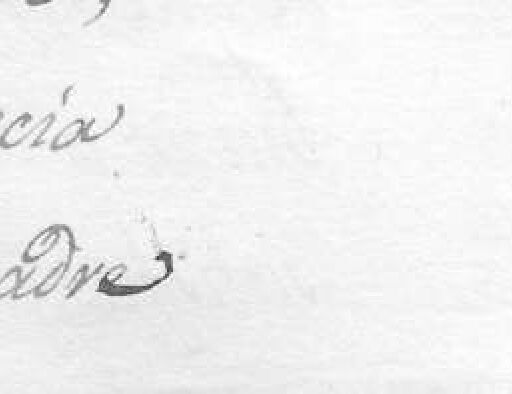 cia
adre